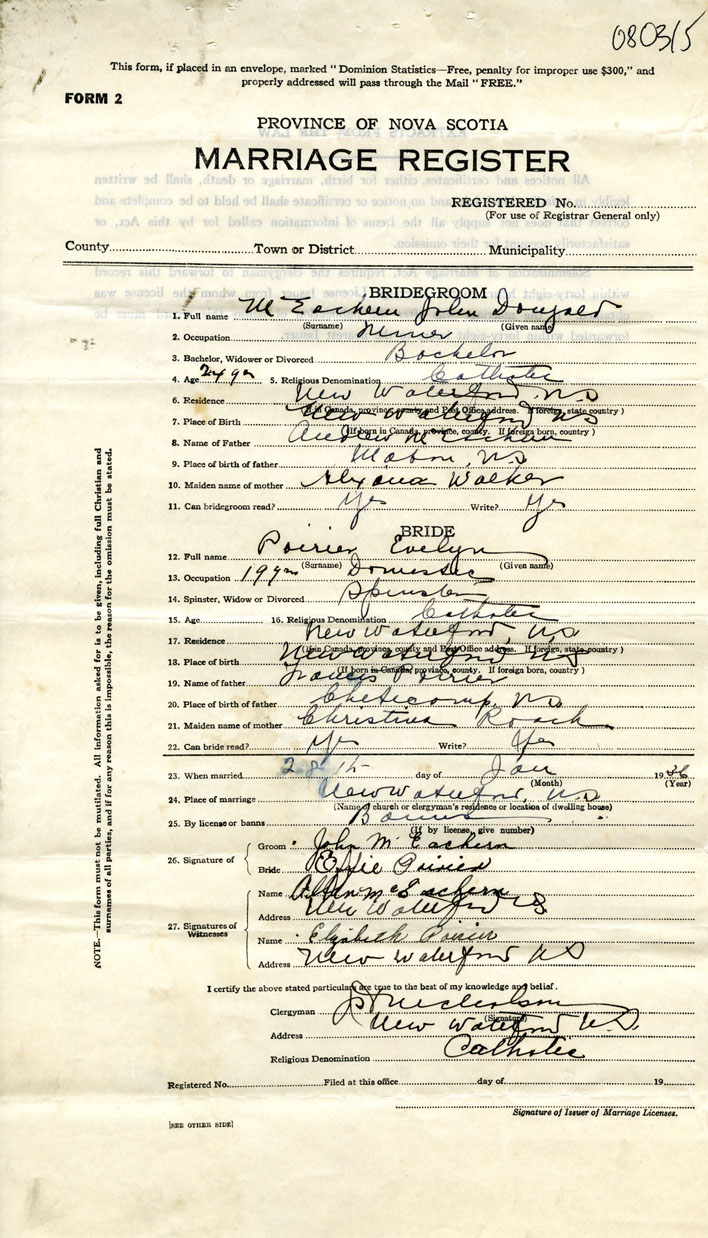 080315
This form, if placed in an envelope, marked " Dominion Statistics—Free, penalty for improper use $300," and
properly addressed will pass through the Mail " FREE."
FORM 2
PROVINCE OF NOVA SCOTIA
MARRIAGE REGISTER
REGISTERED No.
(For use of Registrar General only)
County Town or District Municipality
BRIDEGROOM
1. Full name McEachern John Dougald
(Surname) (Given name)
2. Occupation Miner
3. Bachelor, Widower or Divorced Bachelor
4. Age 24 yrs 5. Religious Denomination Catholic
6. Residence New Waterford, NS
(If in Canada, province, county and Post Office address. If foreign, state country )
7. Place of Birth New Waterford NS
(If born in Canada, province, county. If foreign born, country )
8. Name of Father Andrew McEachern
9. Place of birth of father Mabou, NS
10. Maiden name of mother Walker
11. Can bridegroom read? Yes Write? Yes
BRIDE
12. Full name Poirier Evelyn
(Surname) (Given name)
13. Occupation 19 yrs Domestic
14. Spinster, Widow or Divorced Spinster
15. Age 16. Religious Denomination Catholic
17. Residence New Waterford, NS
(If in Canada, province, county and Post Office address. If foreign, state country )
18. Place of birth New Waterford NS
(If born in Canada, province, county. If foreign born, country )
19. Name of father Francis Poirier
20. Place of birth of father Cheticamp, NS
21. Maiden name of mother Christina Roach
22. Can bride read? Yes Write? Yes
23. When married 28 th day of Jan 1936
(Month) (Year)
24. Place of marriage New Waterford, NS
(Name of church or clergyman's residence or location of dwelling house)
25. By license or banns Banns
(If by license, give number)
26. Signature of
Groom John McEachern
Bride Effie Poirier
27. Signatures of Witnesses
Name McEachern
Address New Waterford NS
Name Elizabeth Poirier
Address New Waterford NS
I certify the above stated particulars are true to the best of my knowledge and belief.
Clergyman Nicholson
(Signature)
Address New Waterford N.S.
Religious Denomination Catholic
Registered No. Filed at this office day of 19
Signature of Issuer of Marriage Licenses.
[SEE OTHER SIDE]
NOTE.—This form must not be mutilated. All information asked for is to be given, including full Christian and
surnames of all parties, and if for any reason this is impossible, the reason for the omission must be stated.